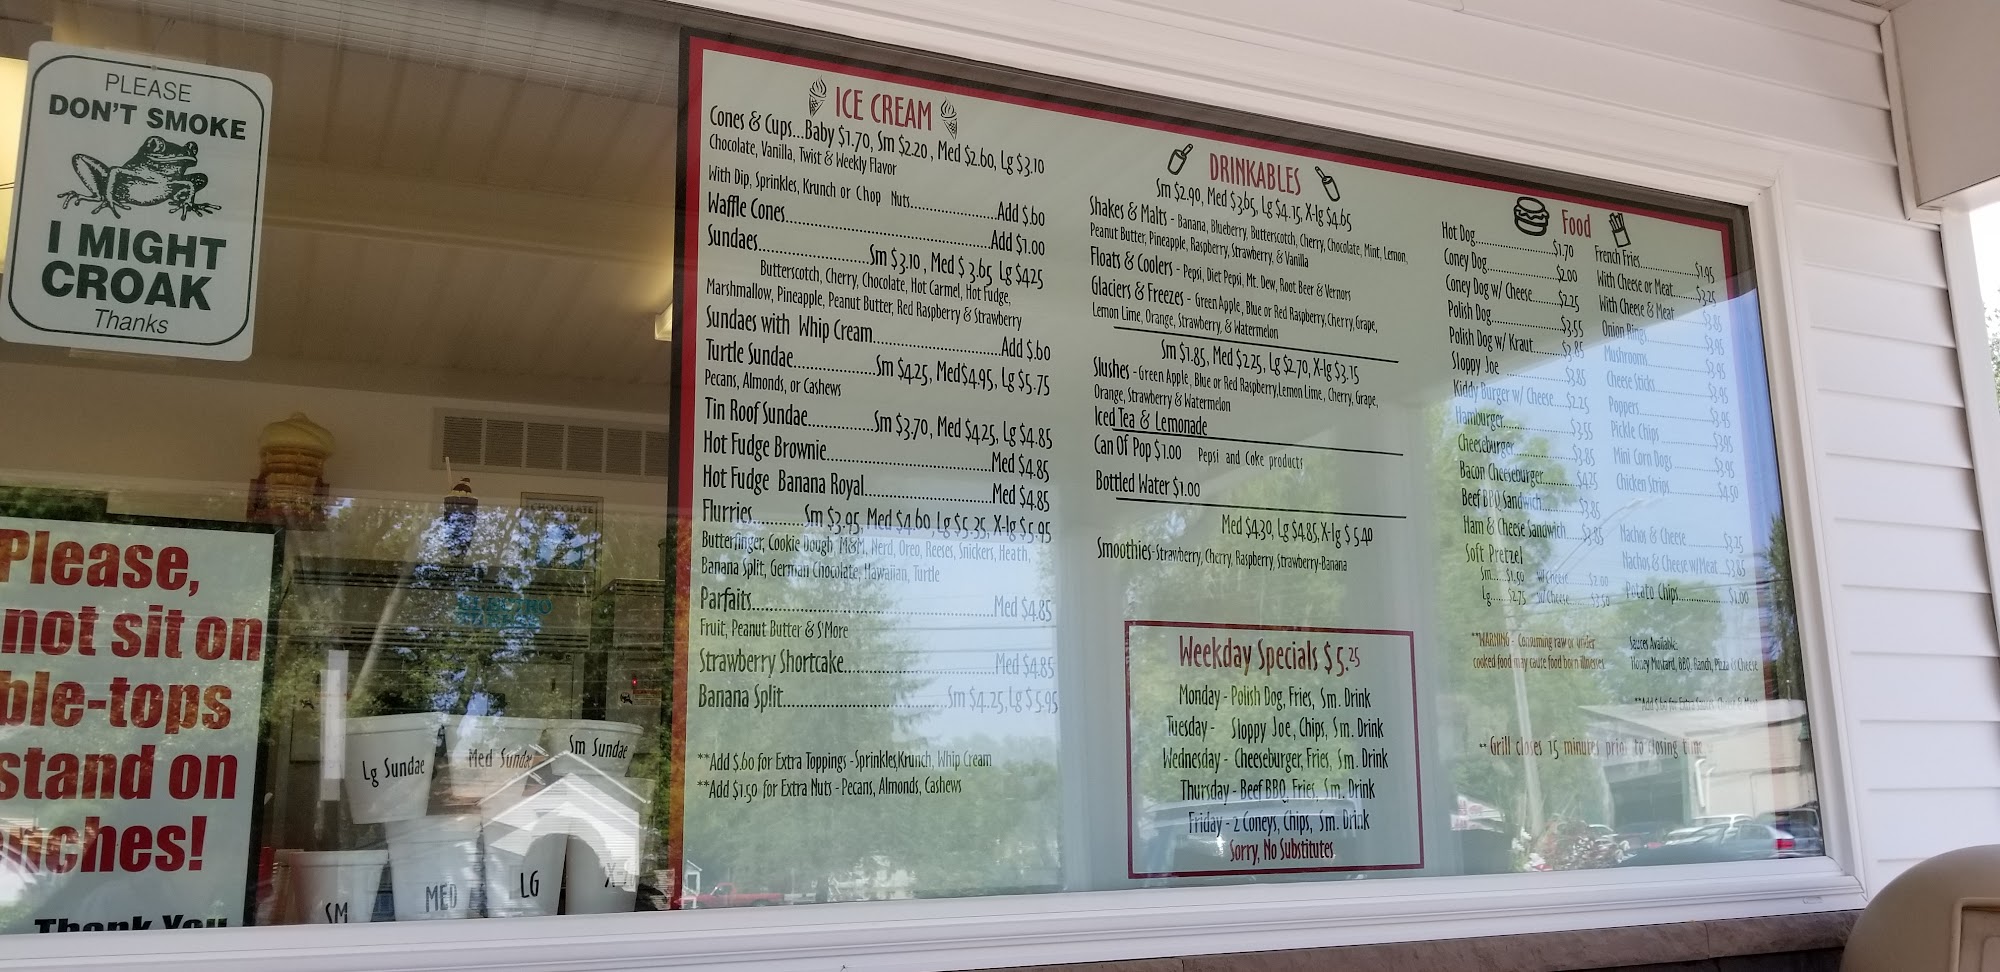 PLEASE
DON'T SMOKE
I MIGHT
CROAK
Thanks
Please,
not sit on
ble-tops
stand on
enches!
Thank You
Lg Sundae
Med Sundae
Sm Sundae
SM
MED
LG
ICE CREAM
Cones & Cups...Baby $1.70, Sm $2.20, Med $2.60, Lg $3.10
Chocolate, Vanilla, Twist & Weekly Flavor
With Dip, Sprinkles, Krunch or Chop Nuts......................Add $.60
Waffle Cones......................Add $1.00
Sundaes......................Sm $3.10, Med $3.65 Lg $4.25
Butterscotch, Cherry, Chocolate, Hot Carmel, Hot Fudge,
Marshmallow, Pineapple, Peanut Butter, Red Raspberry & Strawberry
Sundaes with Whip Cream......................Add $.60
Turtle Sundae......................Sm $4.25, Med $4.95, Lg $5.75
Pecans, Almonds, or Cashews
Tin Roof Sundae................Sm $3.70, Med $4.25, Lg $4.85
Hot Fudge Brownie......................Med $4.85
Hot Fudge Banana Royal......................Med $4.85
Flurries............Sm $3.95, Med $4.60, Lg $5.35, X-lg $5.95
Butterfinger, Cookie Dough, M&M, Nerd, Oreo, Reeses, Snickers, Heath,
Banana Split, German Chocolate, Hawaiian, Turtle
Parfaits......................Med $4.85
Fruit, Peanut Butter & S'More
Strawberry Shortcake......................Med $4.85
Banana Split......................Sm $4.25, Lg $5.95
**Add $.60 for Extra Toppings - Sprinkles, Krunch, Whip Cream
**Add $1.50 for Extra Nuts - Pecans, Almonds, Cashews
DRINKABLES
Sm $2.90, Med $3.65, Lg $4.15, X-lg $4.65
Shakes & Malts - Banana, Blueberry, Butterscotch, Cherry, Chocolate, Mint, Lemon,
Peanut Butter, Pineapple, Raspberry, Strawberry, & Vanilla
Floats & Coolers - Pepsi, Diet Pepsi, Mt. Dew, Root Beer & Vernors
Glaciers & Freezes - Green Apple, Blue or Red Raspberry, Cherry, Grape,
Lemon Lime, Orange, Strawberry, & Watermelon
Sm $1.85, Med $2.25, Lg $2.70, X-lg $3.15
Slushes - Green Apple, Blue or Red Raspberry, Lemon Lime, Cherry, Grape,
Orange, Strawberry & Watermelon
Iced Tea & Lemonade
Can Of Pop $1.00 Pepsi and Coke products
Bottled Water $1.00
Med $4.30, Lg $4.85, X-lg $5.40
Smoothies - Strawberry, Cherry, Raspberry, Strawberry-Banana
Weekday Specials $5.25
Monday - Polish Dog, Fries, Sm. Drink
Tuesday - Sloppy Joe, Chips, Sm. Drink
Wednesday - Cheeseburger, Fries, Sm. Drink
Thursday - Beef BBQ, Fries, Sm. Drink
Friday - 2 Coneys, Chips, Sm. Drink
Sorry, No Substitutes
Food
Hot Dog...............$1.70
Coney Dog...............$2.00
Coney Dog w/ Cheese........$2.25
Polish Dog...............$3.55
Polish Dog w/ Kraut........$3.85
Sloppy Joe...............$3.85
Kiddy Burger w/ Cheese....$2.25
Hamburger...............$3.55
Cheeseburger...............$3.85
Bacon Cheeseburger.........$4.25
Beef BBQ Sandwich..........$3.85
Ham & Cheese Sandwich.....$3.85
Soft Pretzel
Sm.....$1.50 w/Cheese.....$2.00
Lg.....$2.75 w/Cheese.....$3.50
French Fries...............$1.95
With Cheese or Meat........$3.25
With Cheese & Meat........$3.85
Onion Rings...............$3.95
Mushrooms...............$3.95
Cheese Sticks...............$3.95
Poppers...............$3.95
Pickle Chips...............$3.95
Mini Corn Dogs...............$3.95
Chicken Strips...............$4.50
Nachos & Cheese............$3.25
Nachos & Cheese w/Meat....$3.85
Potato Chips...............$1.00
**WARNING - Consuming raw or under
cooked food may cause food born illnesses
Sauces Available:
Honey Mustard, BBQ, Ranch, Pizza & Cheese
**Add $.60 for Extra
** Grill closes 15 minutes prior to closing time